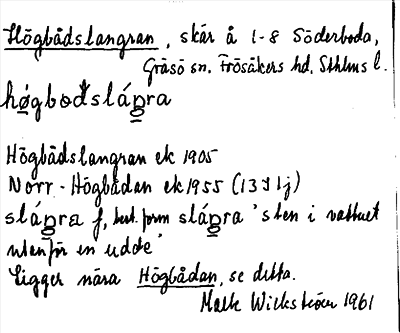 Högbådslangran, skär å 1-8 Söderboda,
Gräsö sn. Frösåkers hd, Sthlms l.
høgbodsláŋra
Högbådslangran ek 1905
Norr-Högbådan ek 1955 (13J 1j)
sláŋra f, best. form sláŋra 'sten i vattnet
utanför en udde'
Ligger nära Högbådan, se detta.
1961